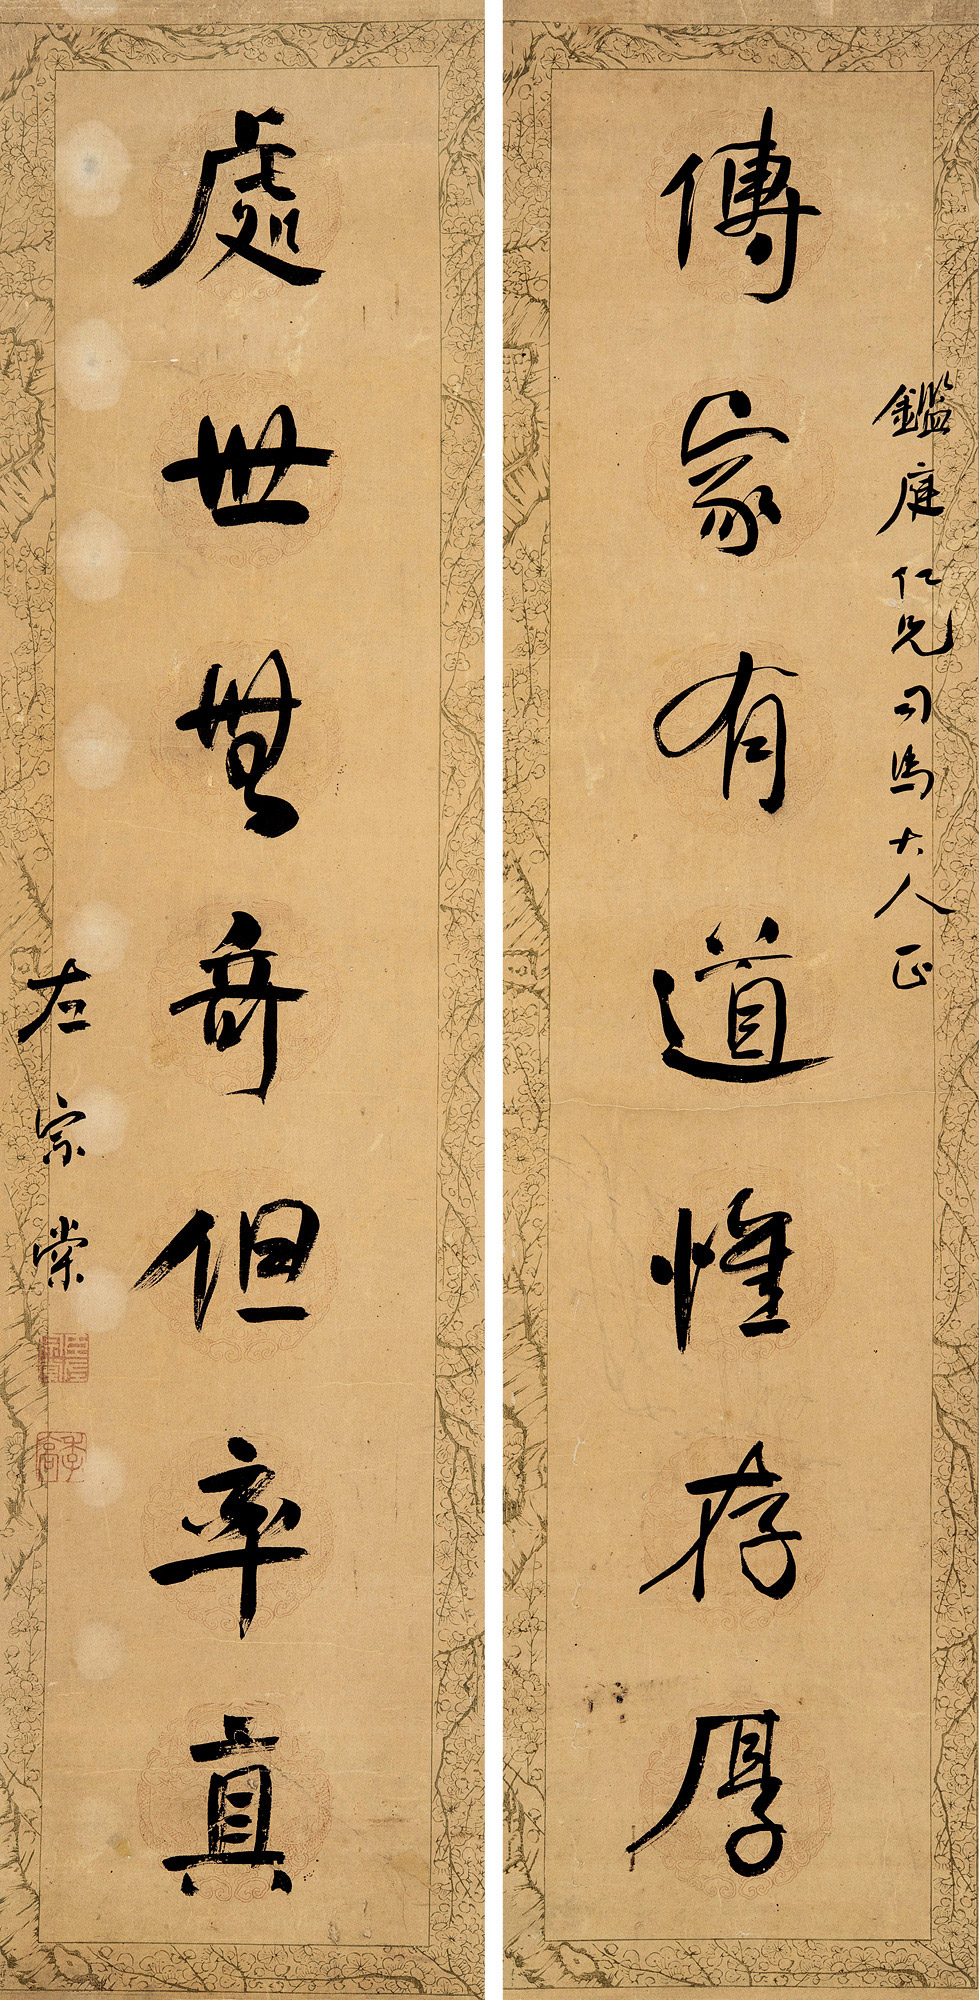 傳家有道惟存厚
鑑庭仁兄司馬大人正
處世無奇但率真
左宗棠